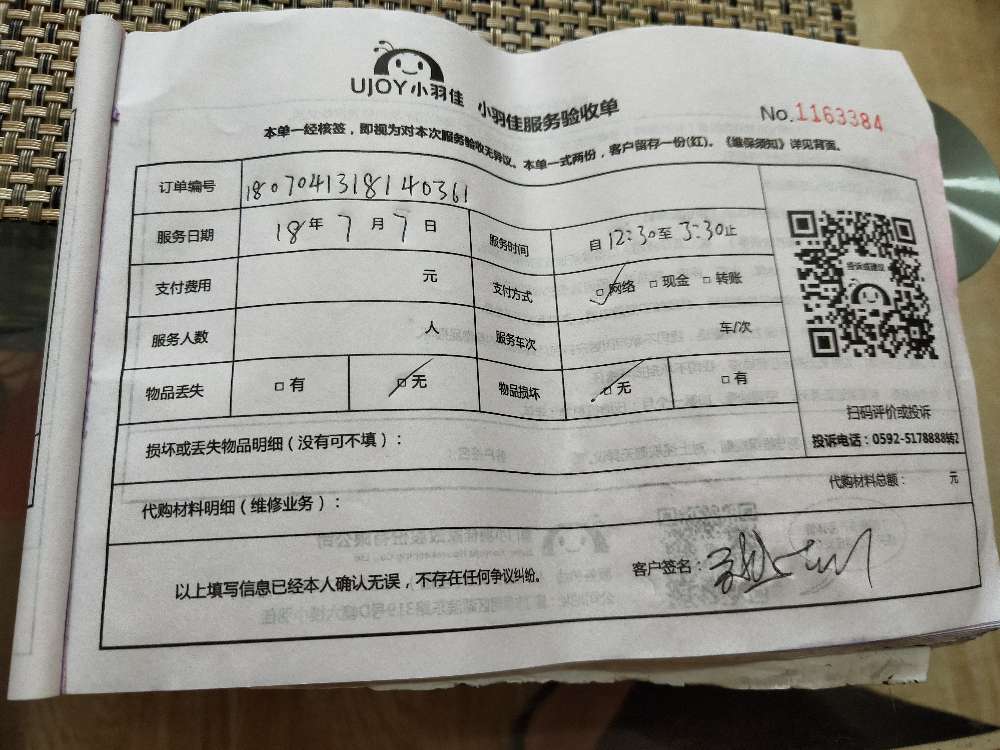 UJOY小羽佳 小羽佳服务验收单
No.1163384
本单一经核签，即视为对本次服务验收无异议。本单一式两份，客户留存一份(红)。《维保须知》详见背面。
订单编号 1807041318140361
服务日期 18年 7月 7日 服务时间 自12:30至3:30止
支付费用 元 支付方式 □网络 □现金 □转账
服务人数 人 服务车次 车/次
物品丢失 □有 □无 物品损坏 □无 □有
投诉或建议
扫码评价或投诉
投诉电话：0592-5178888转2
损坏或丢失物品明细（没有可不填）：
代购材料明细（维修业务）： 代购材料总额： 元
以上填写信息已经本人确认无误，不存在任何争议纠纷。 客户签名：